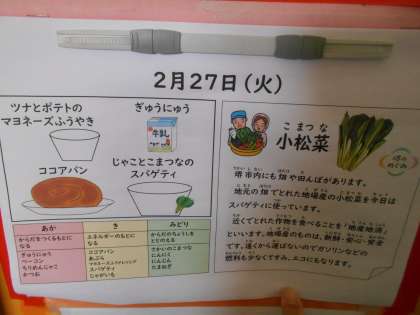 2月27日(火)
ツナとポテトの
マヨネーズふうやき
ぎゅうにゅう
牛乳
ココアパン
じゃことこまつなの
スパゲティ
あか
き
みどり
からだをつくるもとに
なる
エネルギーのもとに
なる
からだのちょうしを
ととのえる
ぎゅうにゅう
ベーコン
ちりめんじゃこ
かつお
ココアパン
あぶら
マヨネーズふうドレッシング
スパゲティ
じゃがいも
さかいのこまつな
にんにく
にんじん
たまねぎ
こまつな
小松菜
堺のめぐみ
堺市内にも畑や田んぼがあります。
地元の畑でとれた地場産の小松菜を今日は
スパゲティに使っています。
近くでとれた作物を食べることを「地産地消」
といいます。地場産のものは、新鮮・安心・安全
です。遠くから運ばないのでガソリンなどの
燃料も少なくてすみ、エコにもなります。